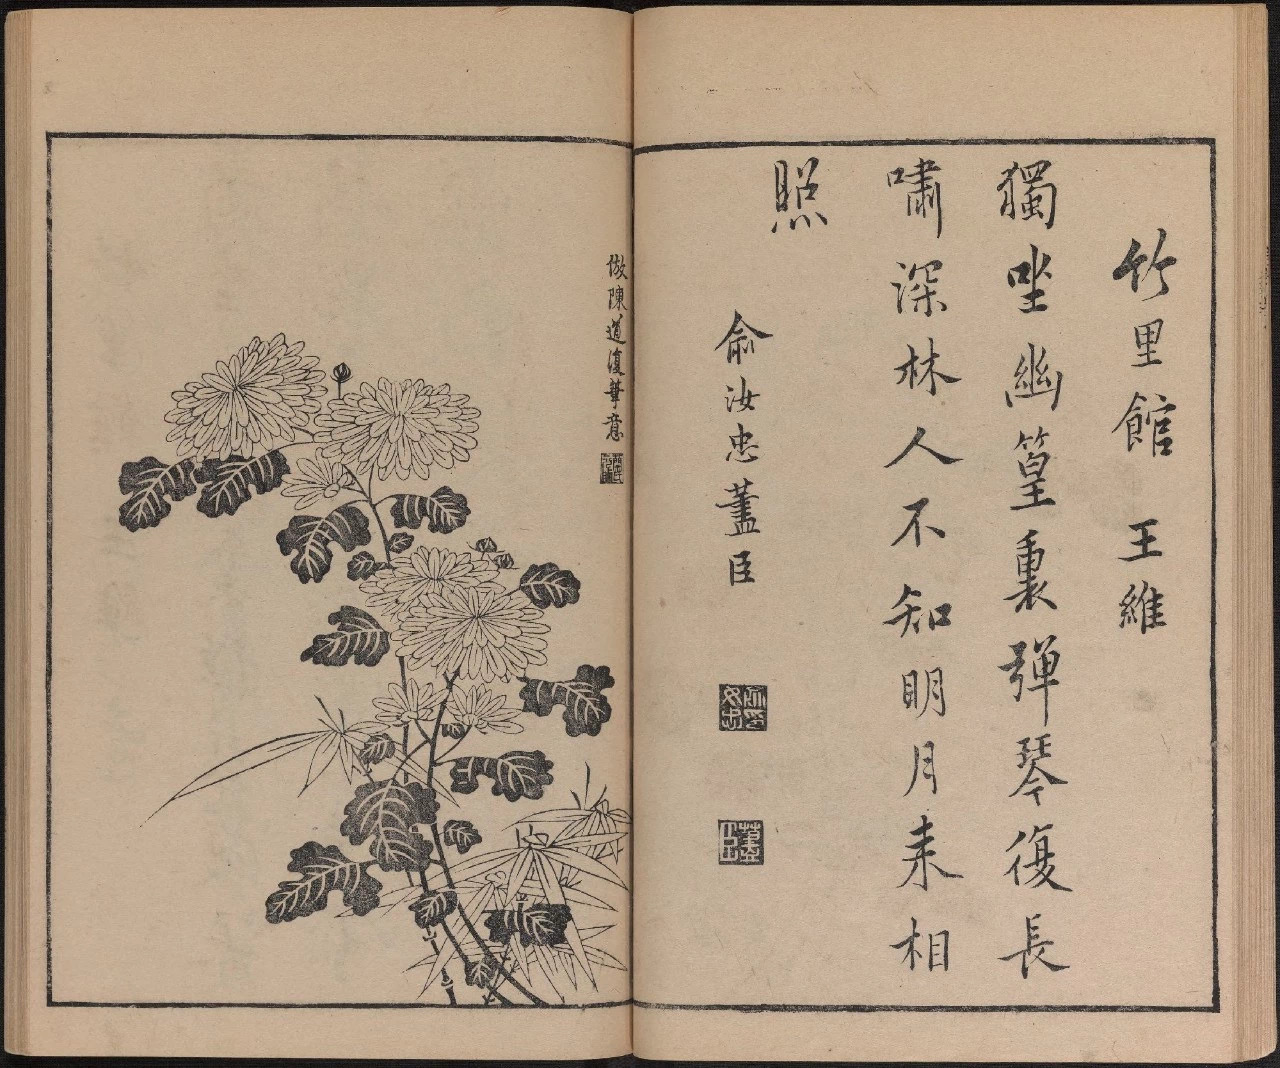 竹里館 王維
獨坐幽篁裏彈琴復長
嘯深林人不知明月来相
照
俞汝忠藎臣
倣陳道復筆意